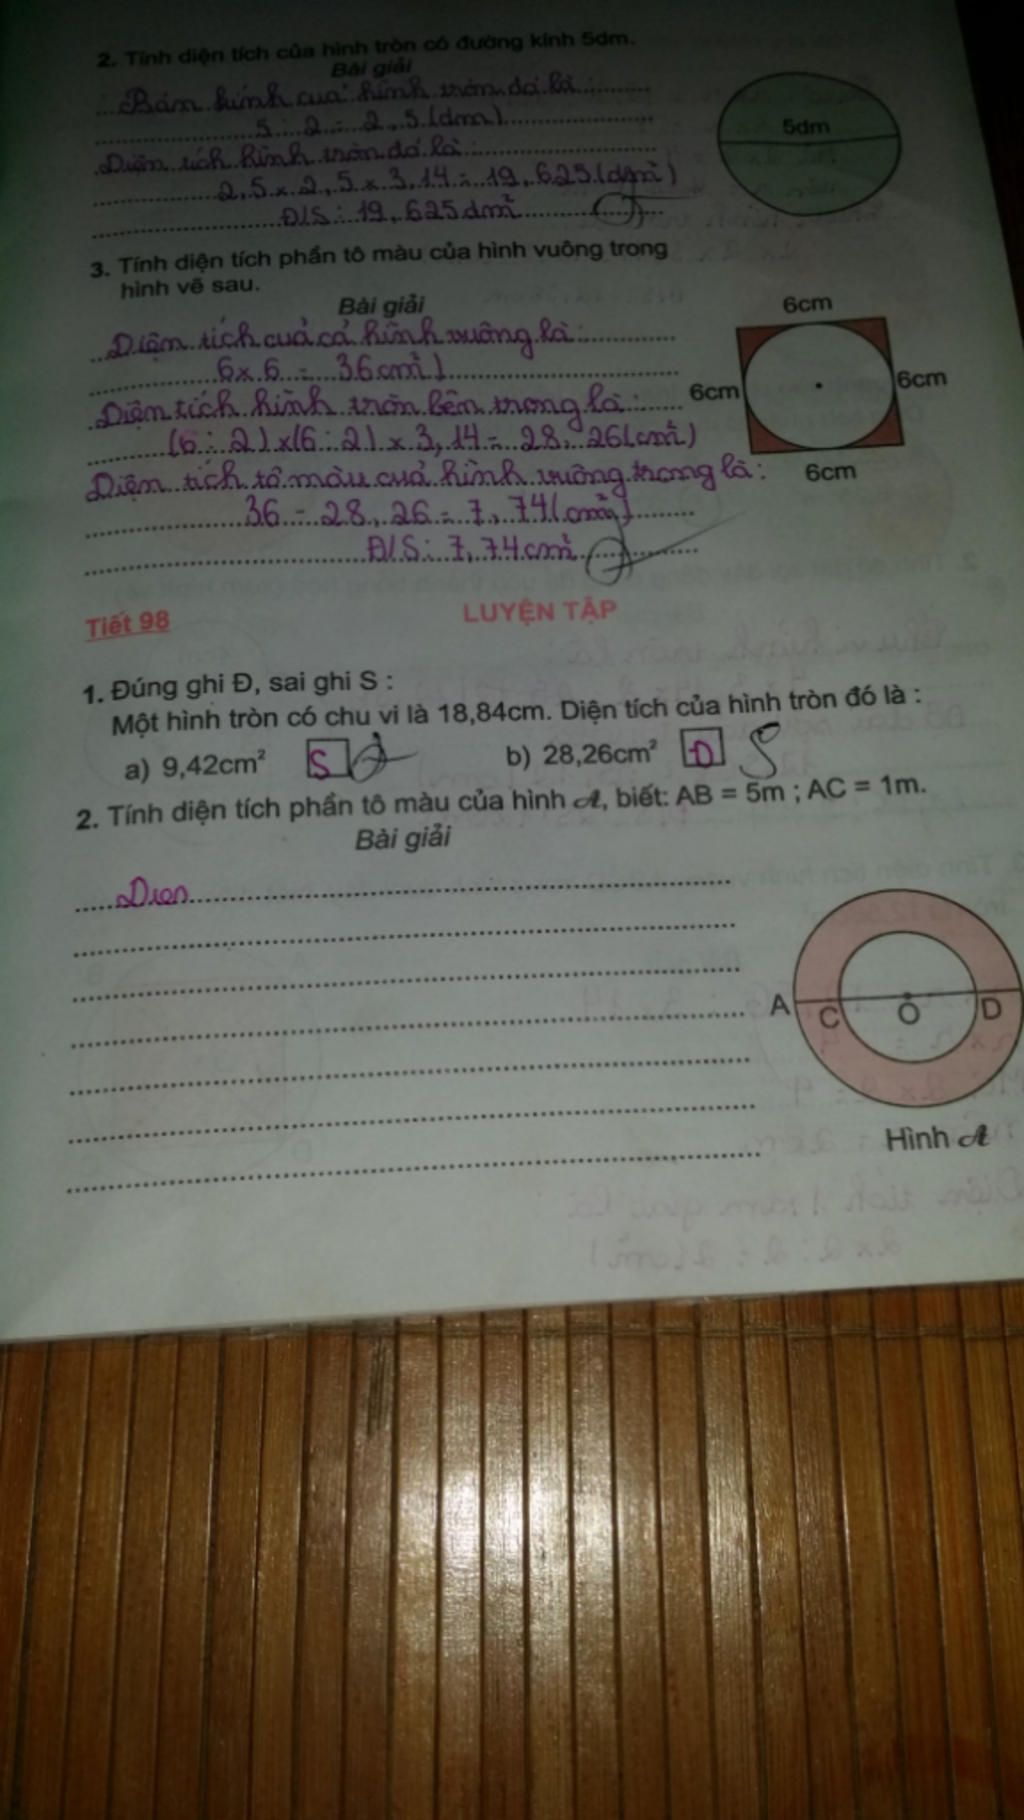 2. Tính diện tích của hình tròn có đường kính 5dm.
Bài giải
Bán kính của hình tròn đó là:
5 : 2 = 2,5 (dm)
Diện tích hình tròn đó là:
2,5 x 2,5 x 3,14 = 19,625 (dm²)
Đ/S: 19,625 dm²
5dm
3. Tính diện tích phần tô màu của hình vuông trong
hình vẽ sau.
Bài giải
Diện tích của cả hình vuông là:
6 x 6 = 36 cm²)
Diện tích hình tròn bên trong là:
(6 : 2) x (6 : 2) x 3,14 = 28,26 (cm²)
Diện tích tô màu của hình vuông trong là:
36 - 28,26 = 7,74 (cm²)
Đ/S: 7,74 cm²
6cm
6cm
6cm
6cm
Tiết 98
LUYỆN TẬP
1. Đúng ghi Đ, sai ghi S :
Một hình tròn có chu vi là 18,84cm. Diện tích của hình tròn đó là :
a) 9,42cm² S Đ b) 28,26cm² Đ S
2. Tính diện tích phần tô màu của hình A, biết: AB = 5m ; AC = 1m.
Bài giải
Dien
A C O D
Hình A